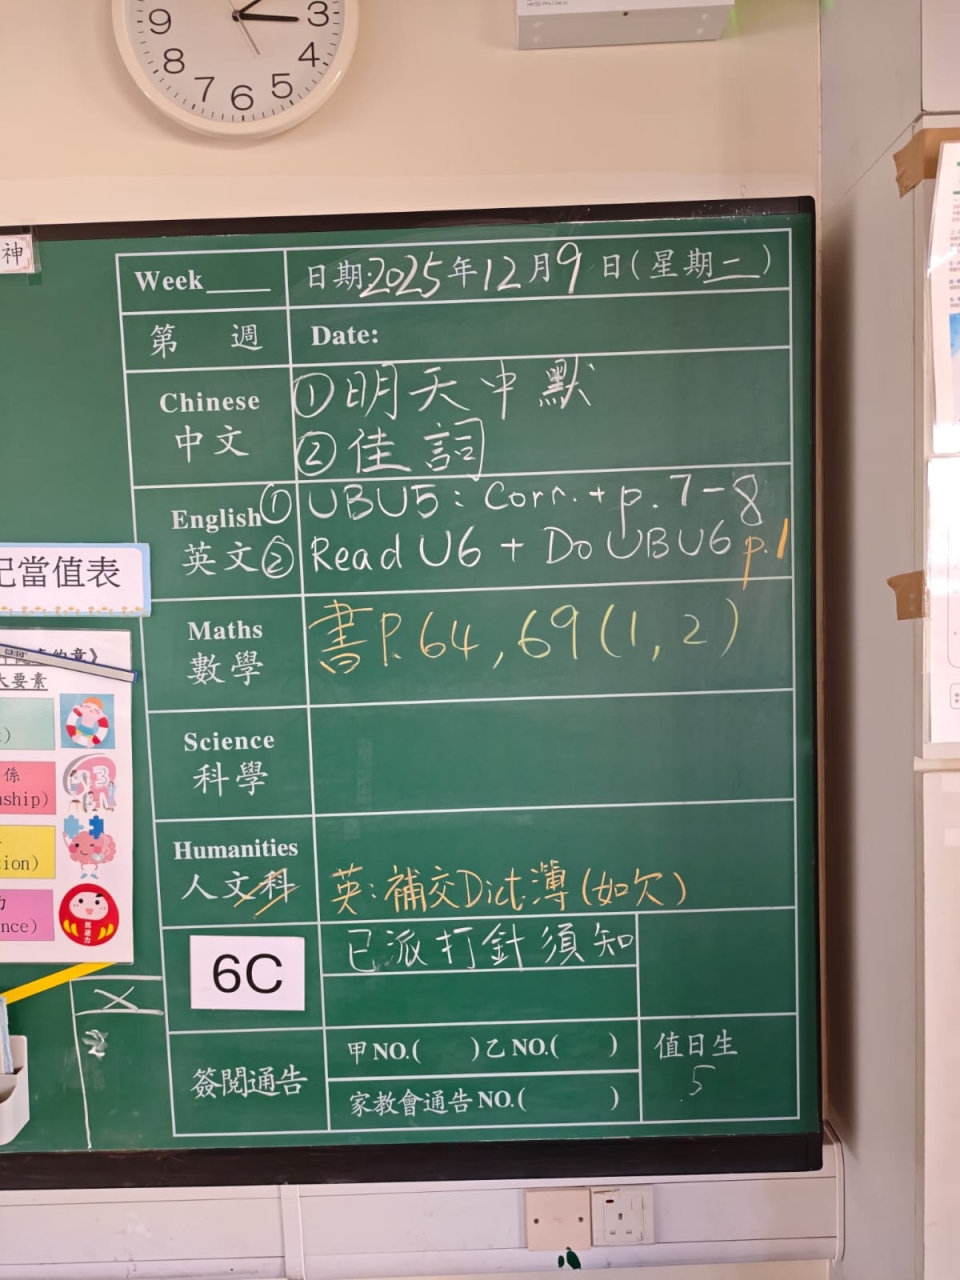 9
3
8
4
7
6
5
神
Week____
日期:2025年12月9日(星期二)
第 週
Date:
Chinese
中文
①明天中默
②佳詞
English
英文
①UBU5: Corr. + p. 7-8
②Read U6 + Do UBU6 p.1
記當值表
Maths
數學
書P.64, 69(1, 2)
》
大要素
Science
科學
係
nship)
tion)
nce)
Humanities
人文科
英:補交Dict.簿(如欠)
6C
已派打針須知
簽閱通告
甲NO.( )乙NO.( )
家教會通告NO.( )
值日生
5